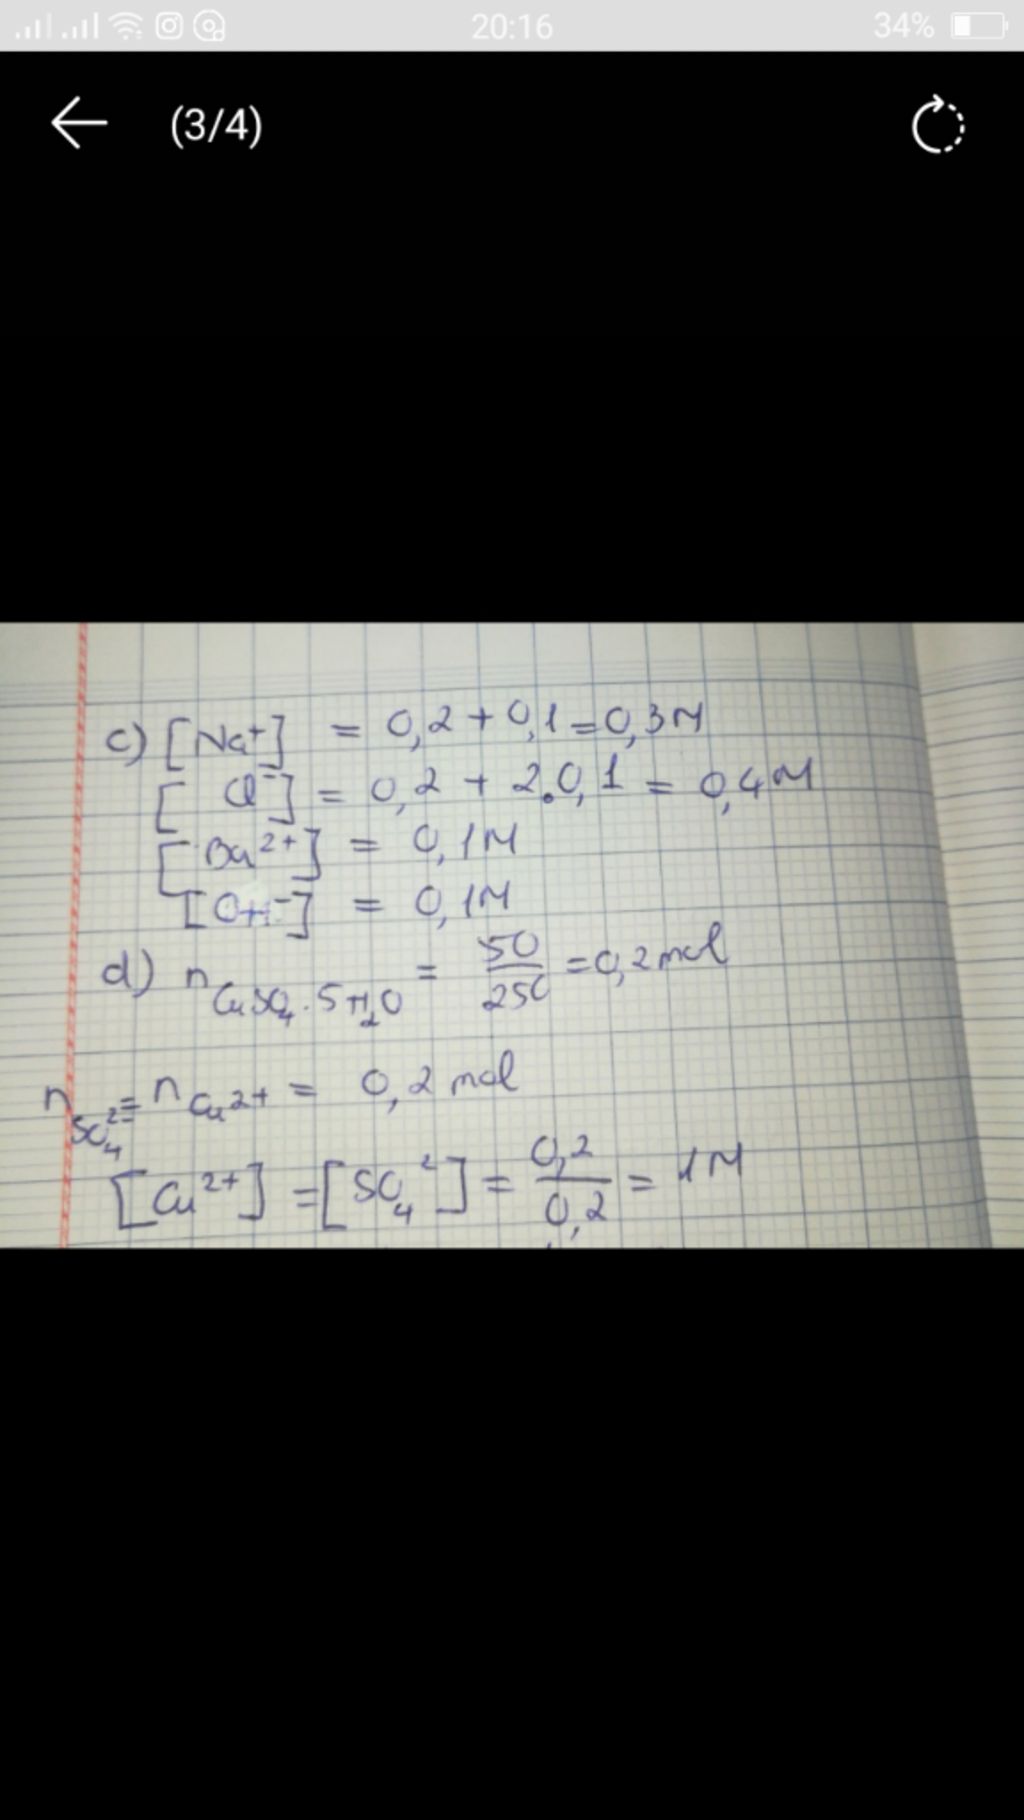 20:16
34%
(3/4)
c) [Na⁺] = 0,2 + 0,1 = 0,3M
[Cl⁻] = 0,2 + 2.0,1 = 0,4M
[Ba²⁺] = 0,1M
[OH⁻] = 0,1M
d) n CuSO₄.5H₂O = 50/250 = 0,2 mol
n SO₄²⁻ = n Cu²⁺ = 0,2 mol
[Cu²⁺] = [SO₄²] = 0,2/0,2 = 1M